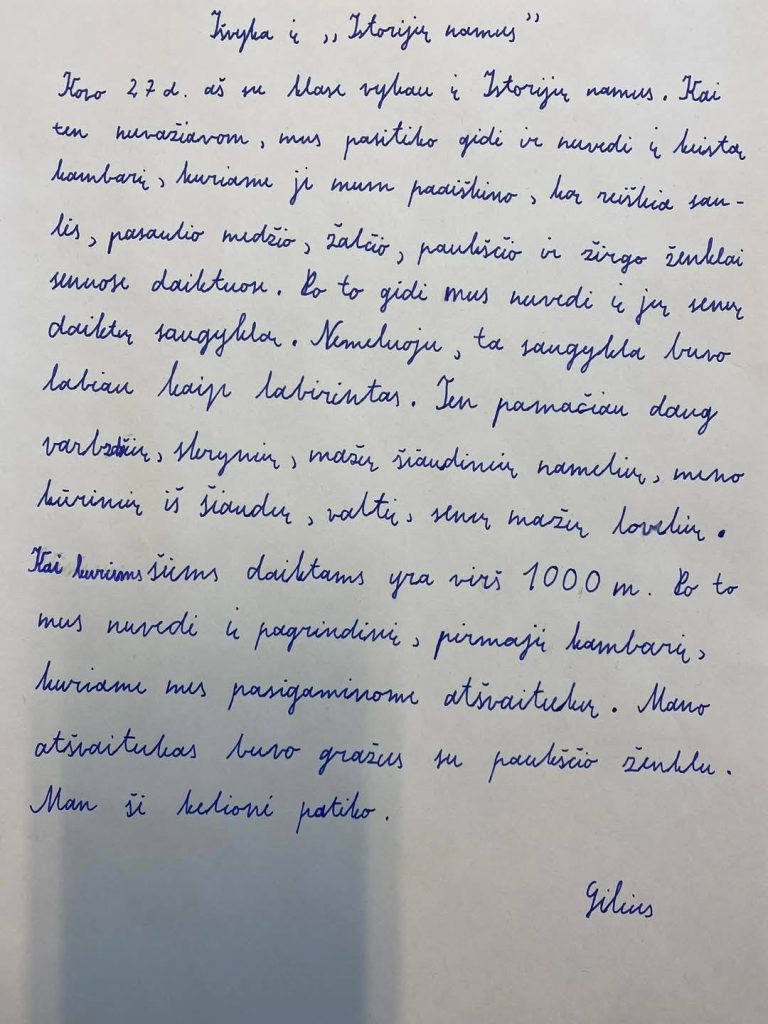 Išvyka į „Istorijų namus”
Kovo 27 d. aš su klase vykau į Istorijų namus. Kai
ten nuvažiavom, mus pasitiko gidė ir nuvedė į keistą
kambarį, kuriame ji mum paaiškino, ką reiškia sau-
lės, pasaulio medžio, žalčio, paukščio ir žirgo ženklai
senuose daiktuose. Po to gidė mus nuvedė į jų senų
daiktų saugyklą. Nemeluoju, ta saugykla buvo
labiau kaip labirintas. Ten pamačiau daug
skrynių, mažų šiaudinių namelių, meno
kūrinių iš šiaudų, valtų, senų mažų lovelių.
Kai kuriems šiems daiktams yra virš 1000 m. Po to
mus nuvedė į pagrindinį, pirmąjį kambarį,
kuriame mes pasigaminome atšvaituką. Mano
atšvaitukas buvo gražus su paukščio ženklu.
Man ši kelionė patiko.
Gilius